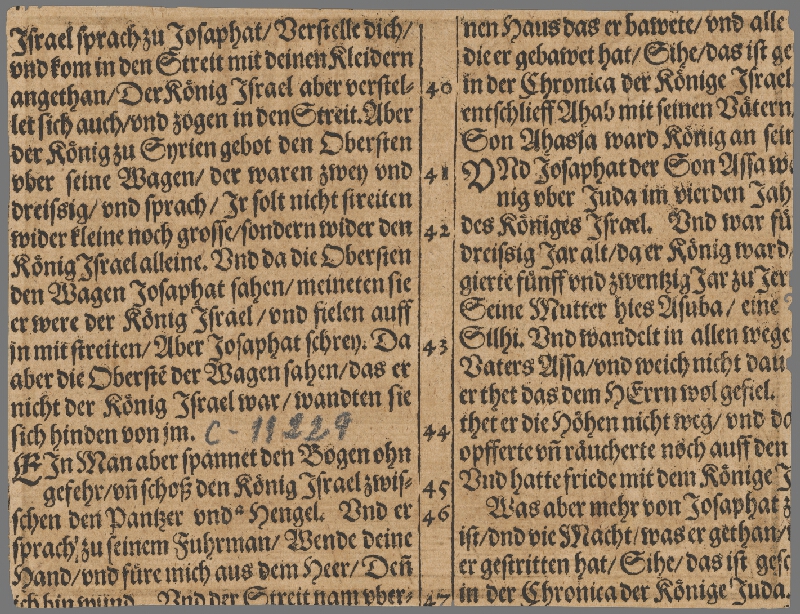 Israel sprach zu Josaphat/ Verstelle dich/
vnd kom in den Streit mit deinen Kleidern
angethan/ Der König Israel aber verstel-
let sich auch/ vnd zogen in den Streit. Aber
der König zu Syrien gebot den Obersten
vber seine Wagen/ der waren zwey vnd
dreissig/ vnd sprach/ Ir solt nicht streiten
wider kleine noch grosse/ sondern wider den
König Israel alleine. Vnd da die Obersten
den Wagen Josaphat sahen/ meineten sie
er were der König Israel/ vnd fielen auff
jn mit streiten/ Aber Josaphat schrey. Da
aber die Oberstē der Wagen sahen/ das er
nicht der König Israel war/ wandten sie
sich hinden von jm. C-11229
EIn Man aber spannet den Bogen ohn
gefehr/ vñ schoß den König Israel zwis-
schen den Pantzer vnd a Hengel. Vnd er
sprach zu seinem Fuhrman/ Wende deine
Hand/ vnd füre mich aus dem Heer/ Deñ
ich bin wund. Vnd der Streit nam vber-
40
41
42
43
44
45
46
47
nen Haus das er bawete/ vnd alle
die er gebawet hat/ Sihe/ das ist ge
in der Chronica der Könige Israel
entschlieff Ahab mit seinen Vätern
Son Ahasja ward König an sein
VNd Josaphat der Son Assa w
nig vber Juda im vierden Jah
des Königes Israel. Vnd war fü
dreissig Jar alt/ da er König ward
gierte fünff vnd zwentzig Jar zu Jer
Seine Mutter hies Asuba/ eine
Silhi. Vnd wandelt in allen wege
Vaters Assa/ vnd weich nicht dau
er thet das dem HErrn wol gefiel.
thet er die Höhen nicht weg/ vnd da
opfferte vñ räucherte noch auff den
Vnd hatte friede mit dem Könige J
Was aber mehr von Josaphat z
ist/ vnd die Macht/ was er gethan/
er gestritten hat/ Sihe/ das ist gesc
in der Chronica der Könige Juda.